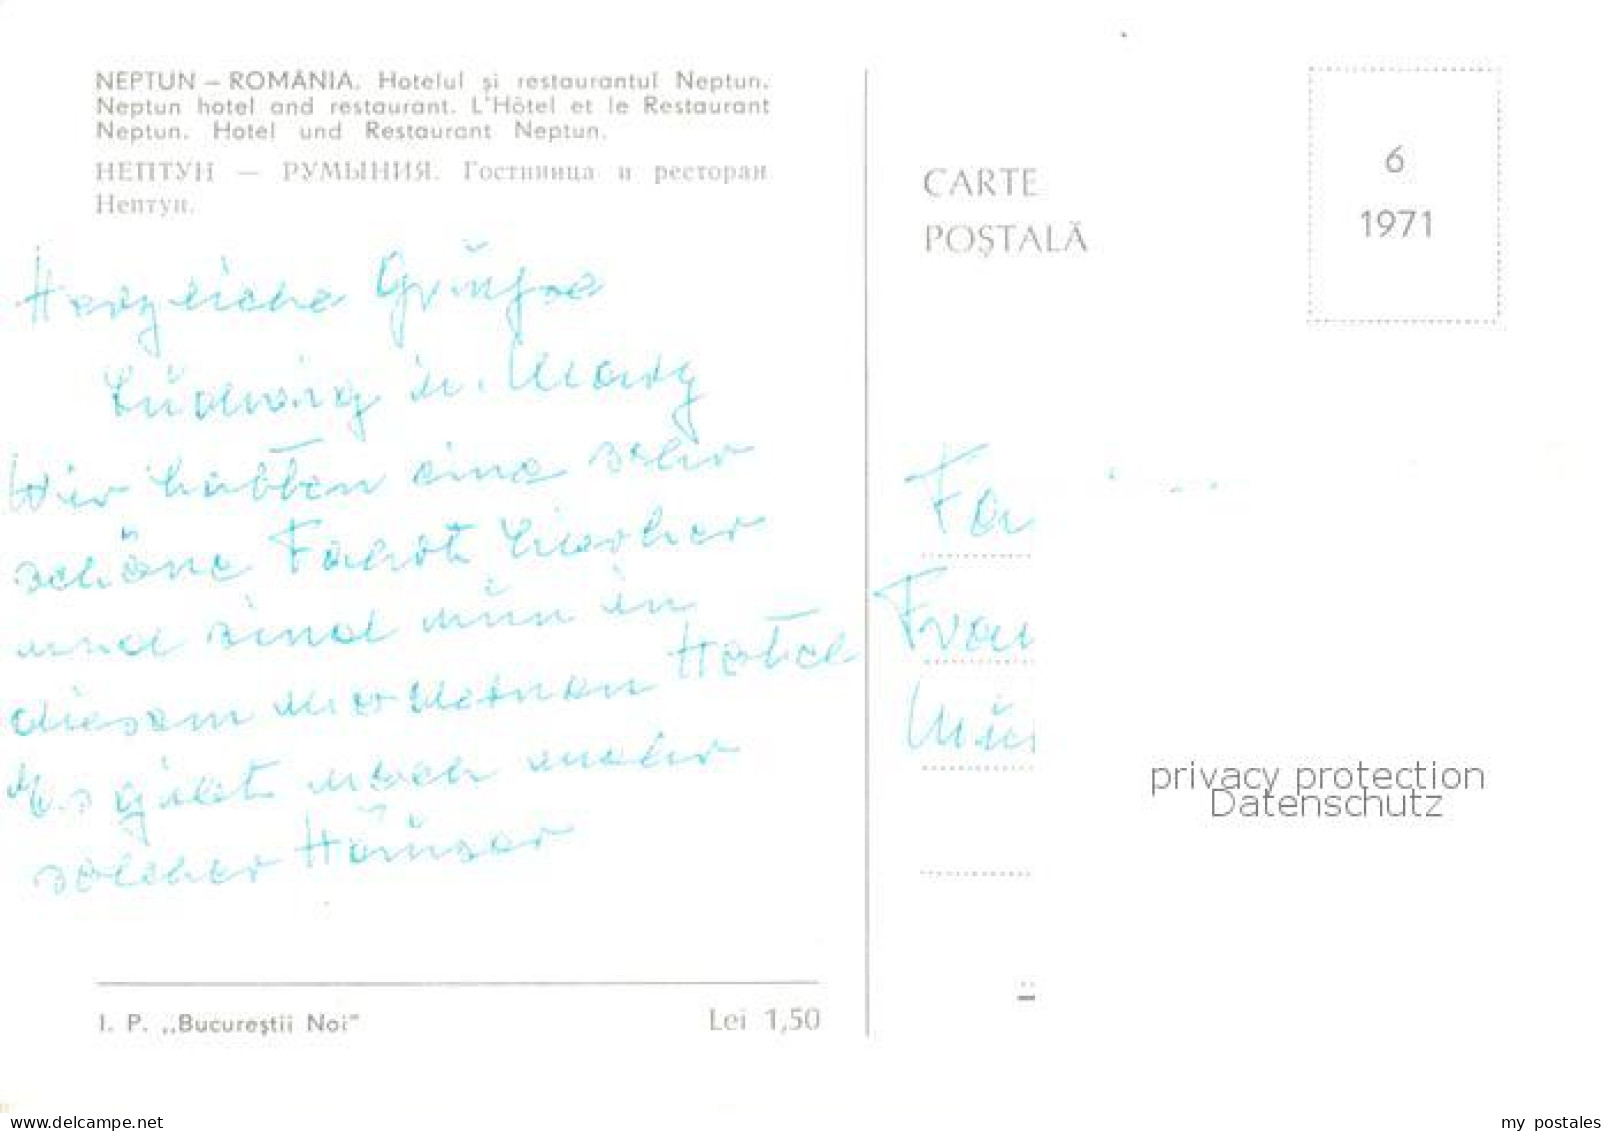 NEPTUN – ROMÂNIA. Hotelul și restaurantul Neptun.
Neptun hotel and restaurant. L'Hôtel et le Restaurant
Neptun. Hotel und Restaurant Neptun.
НЕПТУН — РУМЫНИЯ. Гостиница и ресторан
Нептун.
Herzliche Grüße
Ludwig u. Mary
Wir hatten eine sehr
schöne Fahrt hierher
und sind nun in
diesem modernen Hotel
Es gibt noch mehr
solcher Häuser
I. P. „Bucureștii Noi"
Lei 1,50
CARTE
POȘTALĂ
6
1971
Fa
Frau
Mü
privacy protection
Datenschutz
www.delcampe.net
my postales